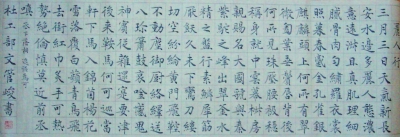 麗人行
三月三日天氣新長
安水邊多麗人態濃
意遠淑且真肌理細
膩骨肉勻繡羅衣裳
照暮春蹙金孔雀銀
麒麟頭上何所有翠
微㔩葉垂鬢唇背後
何所見珠壓腰衱穩
稱身就中雲幕椒房
親賜名大國虢與秦
紫駝之峰出翠釜水
精之盤行素鱗犀箸
厭飫久未下鸞刀縷
切空紛綸黃門飛鞚
不動塵御廚絡繹送
八珍簫鼓哀吟感鬼
神賓從雜遝實要津
後來鞍馬何逡巡當
軒下馬入錦茵楊花
雪落覆白蘋青鳥飛
去銜紅巾炙手可熱
勢絕倫慎莫近前丞
相嗔
杜工部文管峻書